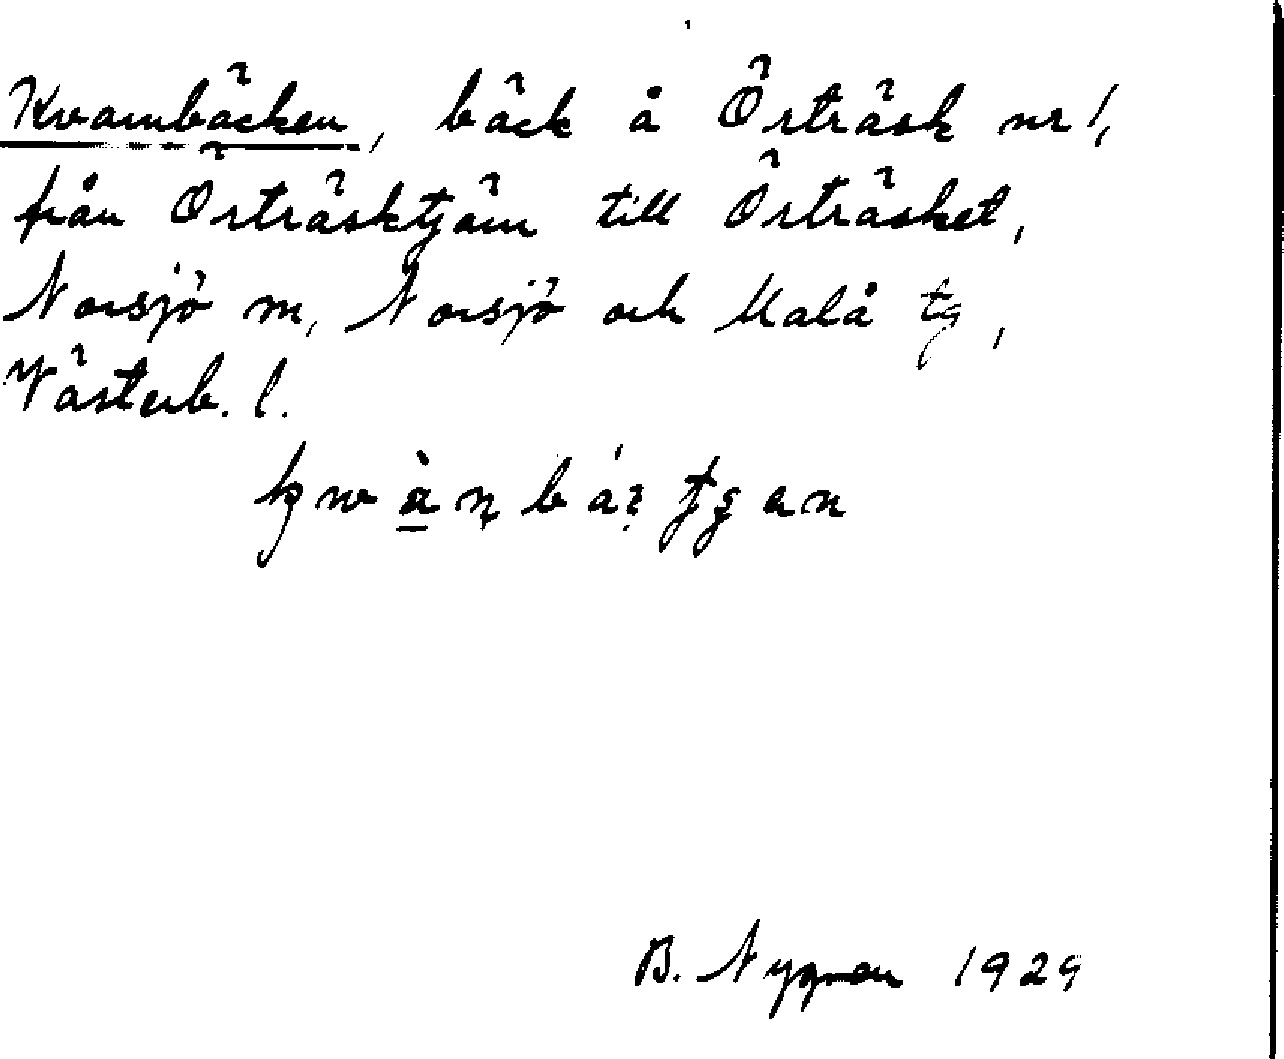 Kvarnbäcken, bäck å Örträsk nr 1,
från Örträsktjärn till Örträsket,
Norsjö sn, Norsjö och Malå tg,
Västerb. l.
B. Nygren 1929